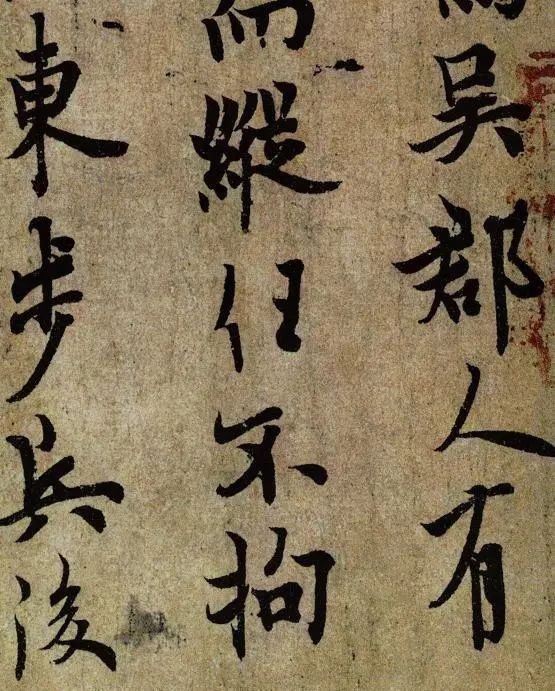 吳郡人有
而縱任不拘
東步兵後